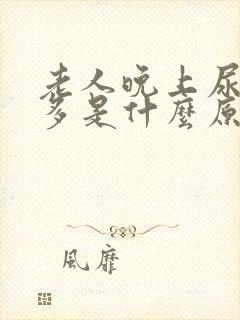 老人晚上尿
多是什麼原
風靡